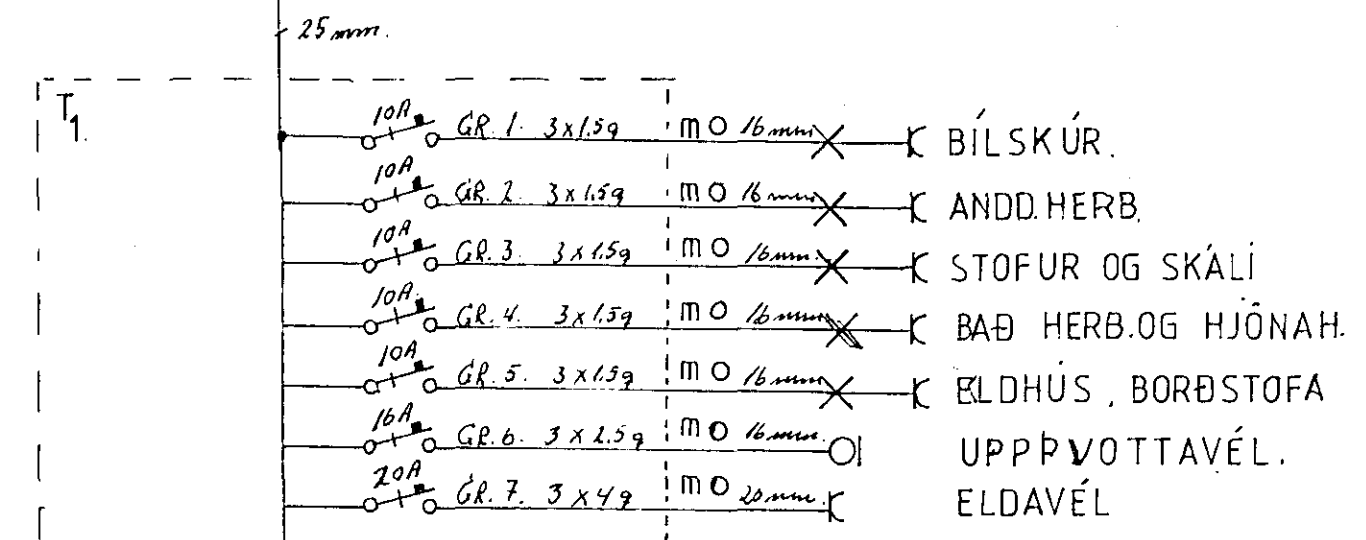 25 mm.
T1.
10A GR. 1. 3x1.5q m O 16 mm BÍLSKÚR.
10A GR. 2. 3x1.5q m O 16 mm ANDD. HERB.
10A GR. 3. 3x1.5q m O 16 mm. STOFUR OG SKÁLI
10A. GR. 4. 3x1.5q m O 16 mm BAÐ HERB. OG HJÓNAH.
10A GR. 5. 3x1.5q m O 16 mm ELDHÚS, BORÐSTOFA
16A GR. 6. 3x2.5q m O 16 mm. UPPÞVOTTAVÉL.
20A GR. 7. 3x4q m O 20 mm. ELDAVÉL